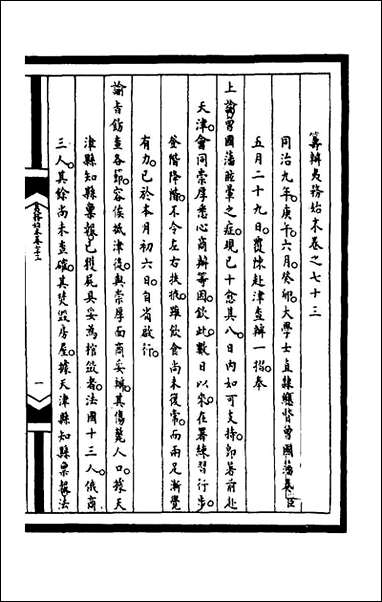 籌辦夷務始末卷之七十三
同治九年。庚午。六月。癸卯。大學士直隸總督曾國藩奏。臣
五月二十九日。覆陳赴津查辦一摺。奉
上諭曾國藩眩暈之症。現已十愈其八。日內如可支持。卽著前赴
天津。會同崇厚悉心商辦等因。欽此。數日以來。在署練習行步。
登階降階。不令左右扶掖。雖飲食尚未復常。而兩足漸覺
有力。已於本月初六日。自省啟行。
諭吉飭查各節。容俟抵津後。與崇厚面商妥辦。其傷斃人口。據天
津縣知縣稟報。已獲屍具妥為棺殮者。法國十三人。俄商
三人。其餘尚未查確。其焚毀房屋。據天津縣知縣稟報。法
夷務始末卷七十三
一